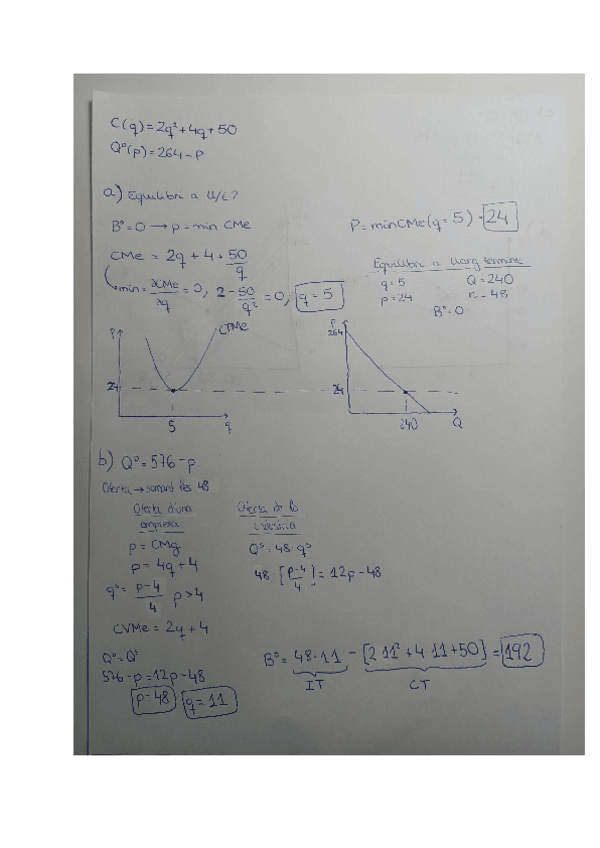 C(q)=2q²+4q+50
Qᴰ(p)=264-P
a) Equilibri a Ll/t?
Bº=0 → p = min CMe
P=minCMe(q=5)=24
CMe = 2q + 4 + 50/q
min = ∂CMe/∂q = 0, 2 - 50/q² = 0, q = 5
Equilibri a llarg termini
q=5 Q=240
p=24 n=48
Bº=0
P CTMe
24
5 q
P
264
24
240 Q
b) Qᴰ=576-p
Oferta → sumant les 48
Oferta d'una
empresa
p = CMg
p = 4q+4
qˢ = p-4/4 p>4
CVMe = 2q+4
Oferta de la
indústria
Qˢ=48·qˢ
48·[p-4/4]=12p-48
Qᴰ=Qˢ
576-p=12p-48
p=48 q=11
Bº = 48·11 - [2·11²+4·11+50] = 192
IT CT